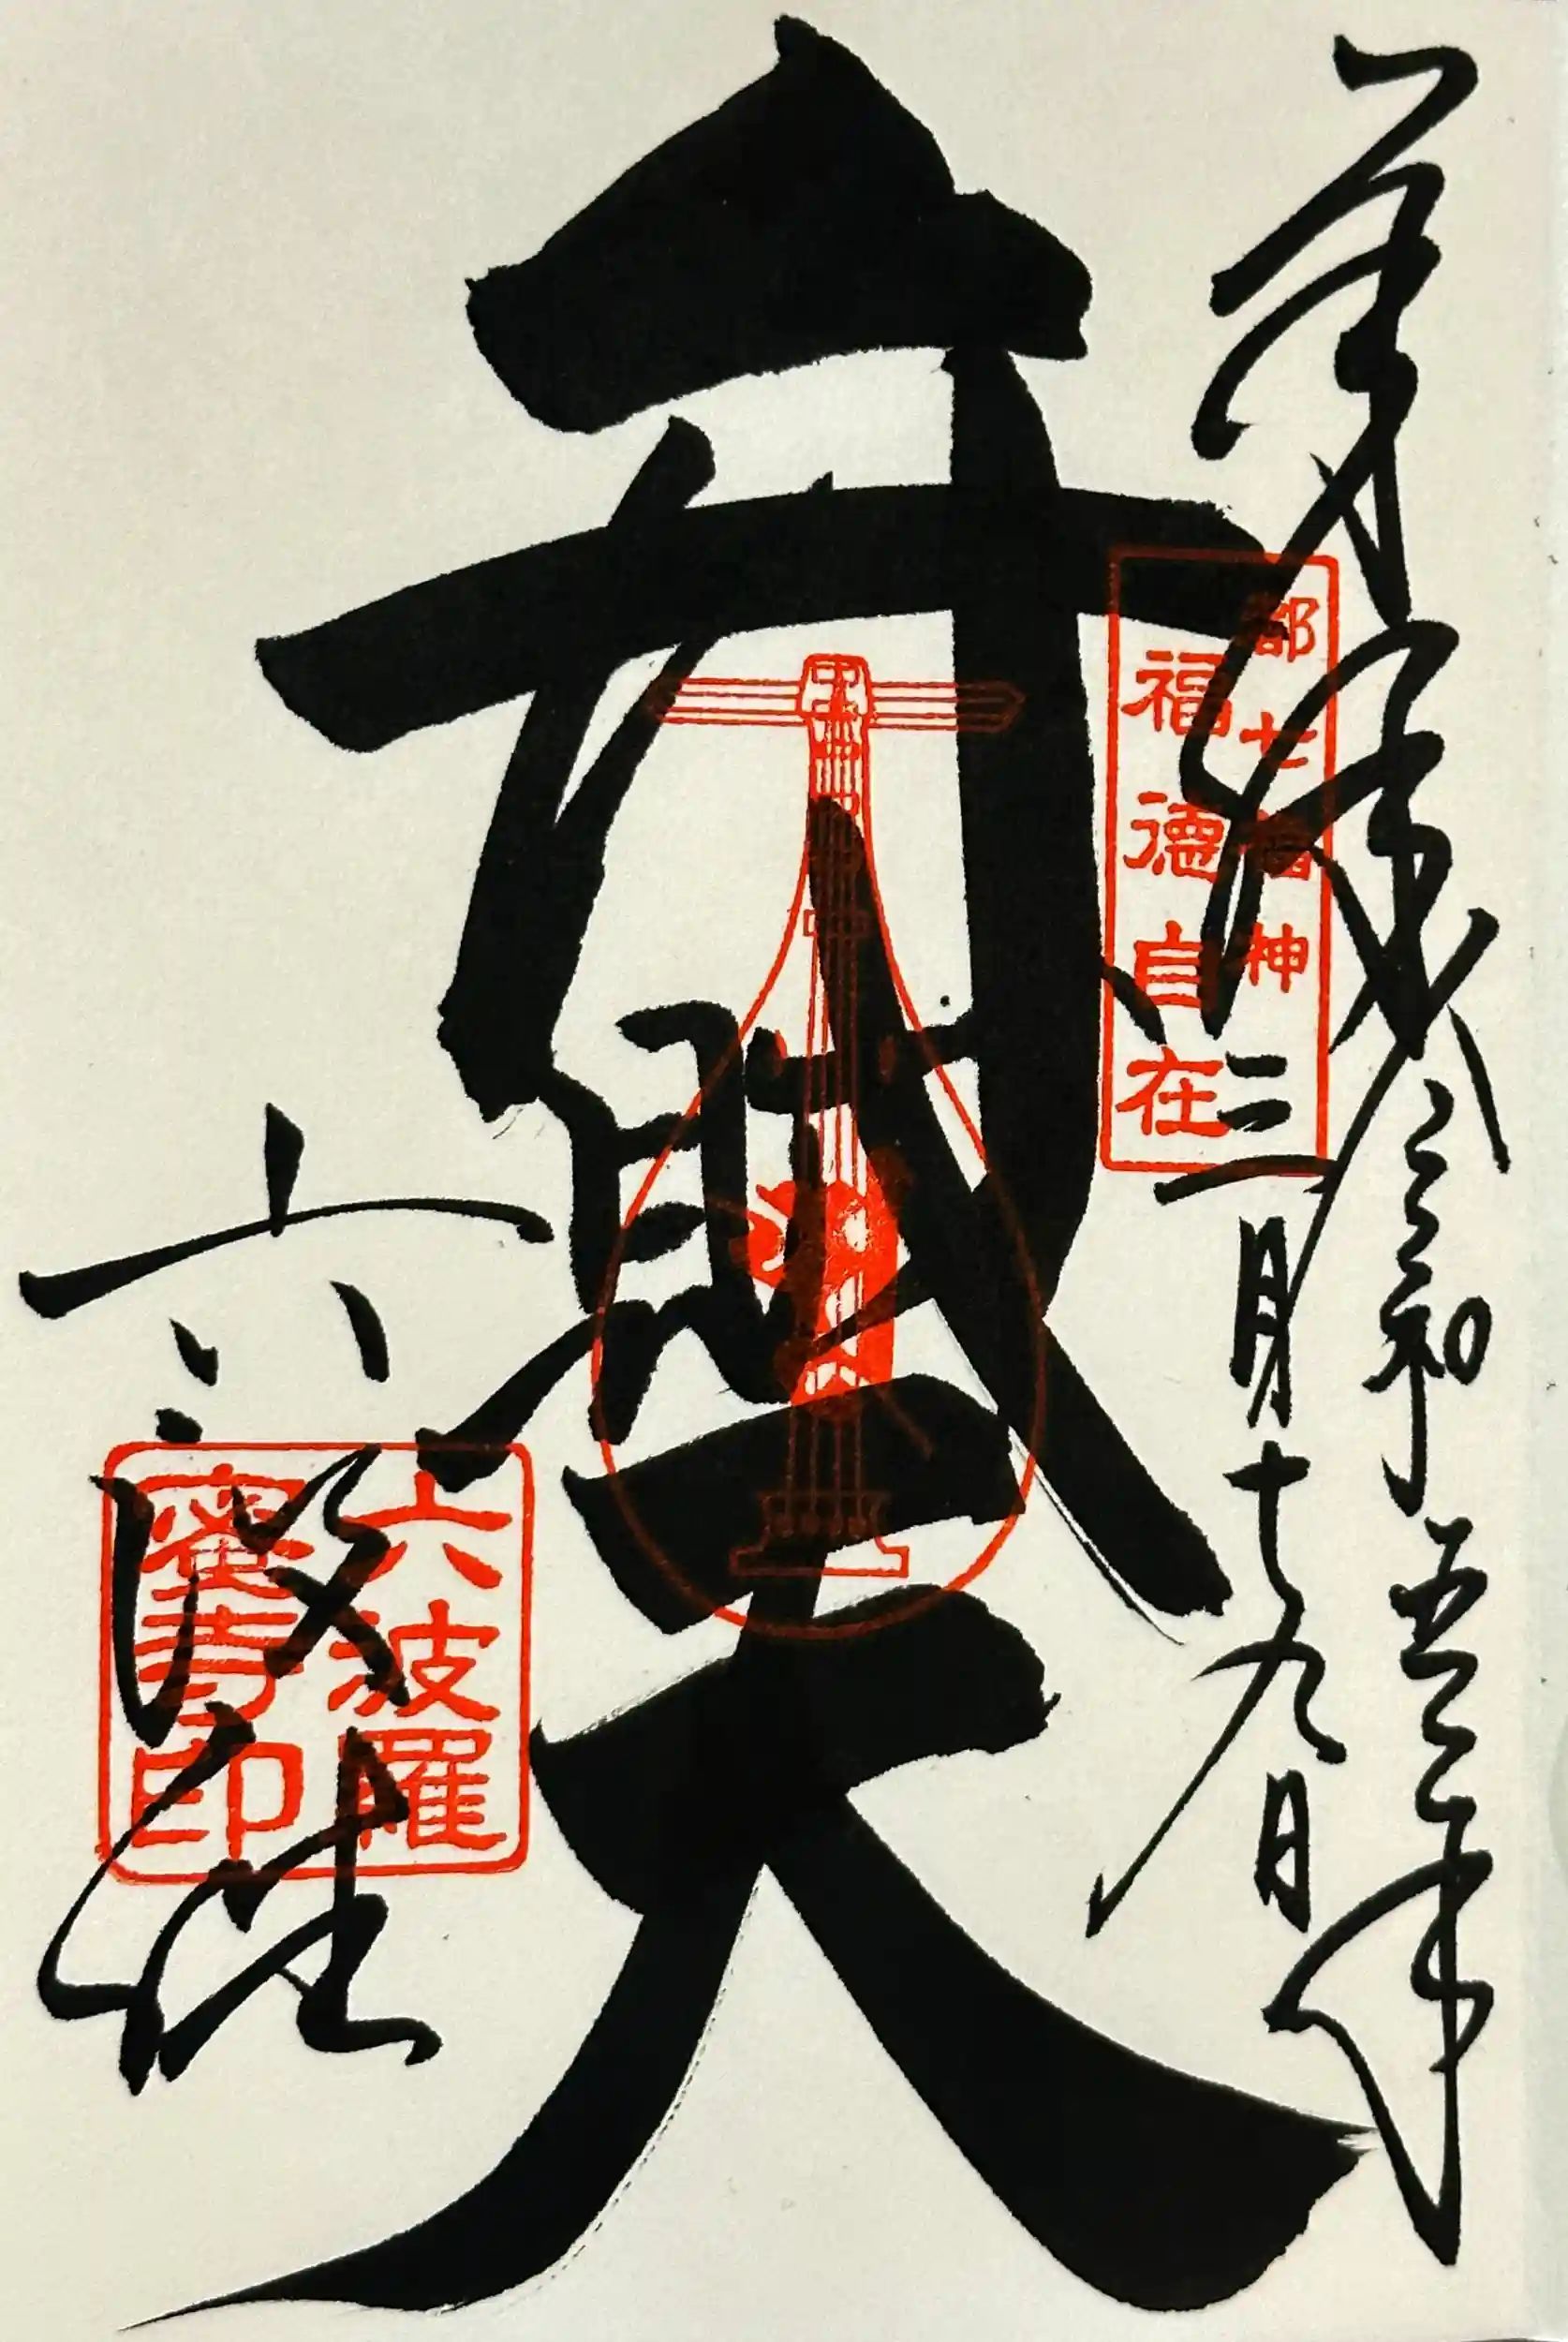 奉拝 令和五年
三月十九日
都七福神
福徳自在
弁財天
六波羅
六波羅
蜜寺印